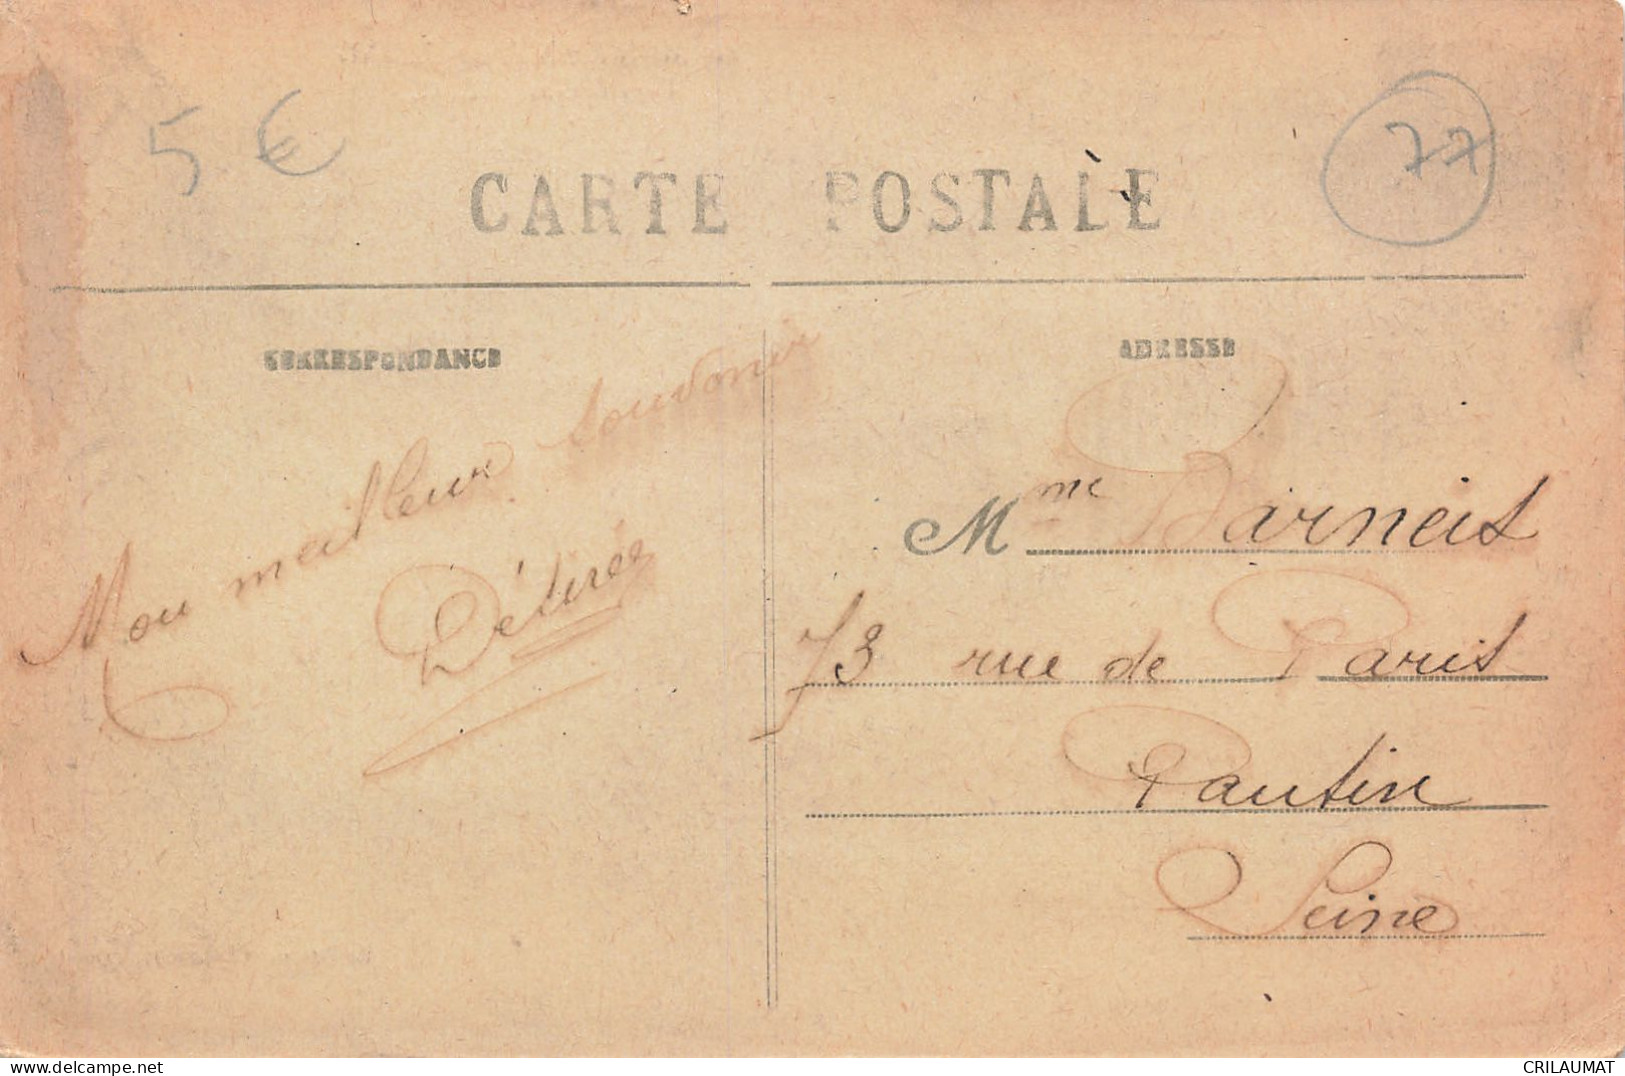 5 €
77
CARTE POSTALE
CORRESPONDANCE
ADRESSE
Mon meilleur souvenir
Désirée
Mme Barneit
73 rue de Paris
Pantin
Seine
delcampe.net
CRILAUMAT